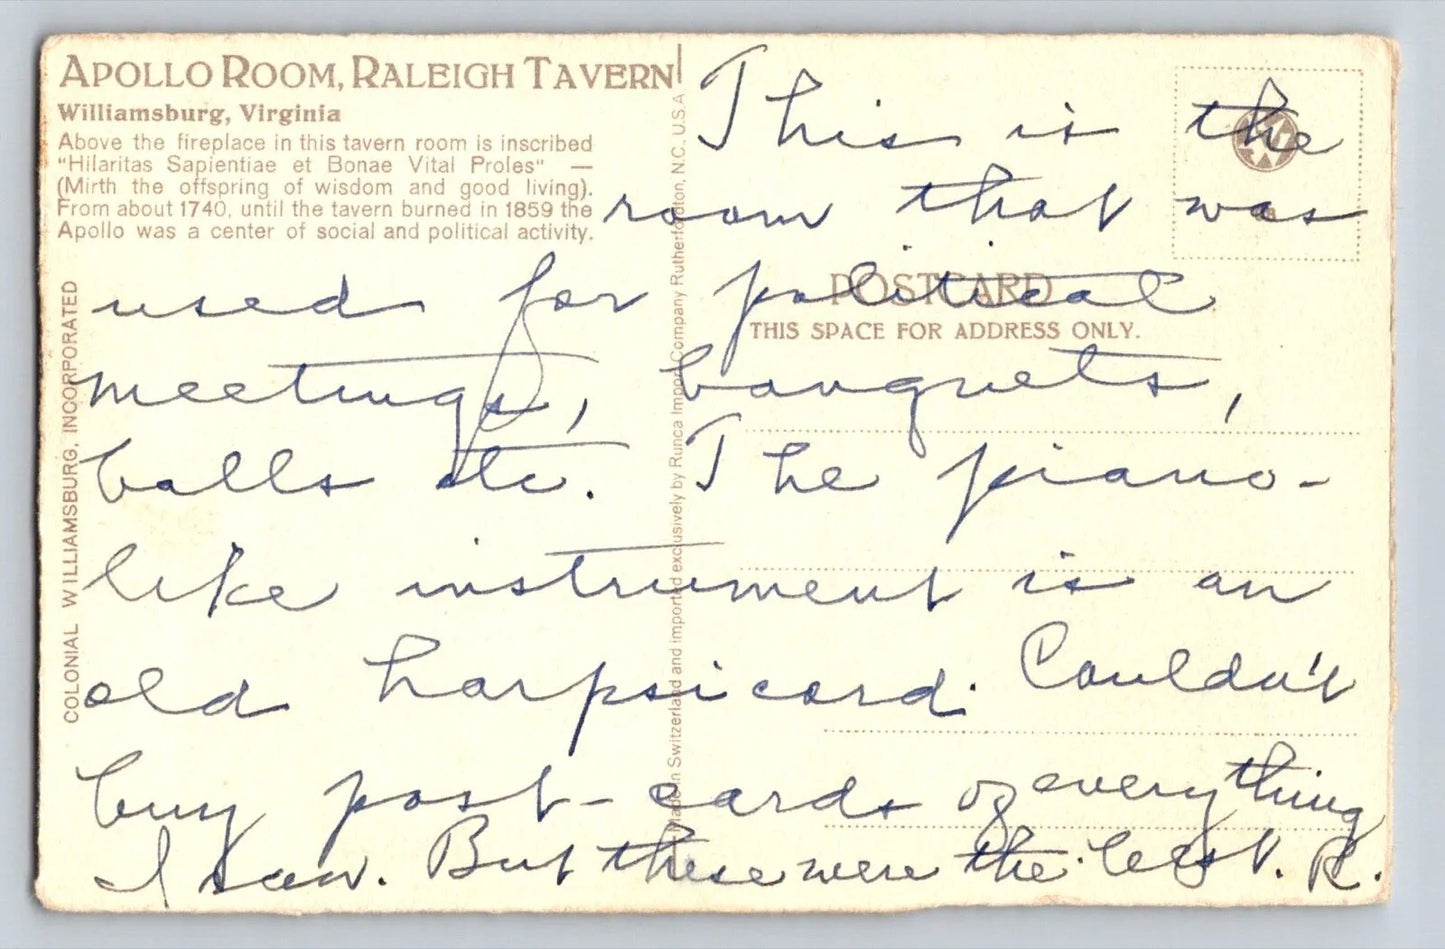 APOLLO ROOM, RALEIGH TAVERN
Williamsburg, Virginia
Above the fireplace in this tavern room is inscribed
"Hilaritas Sapientiae et Bonae Vital Proles" —
(Mirth the offspring of wisdom and good living).
From about 1740, until the tavern burned in 1859 the
Apollo was a center of social and political activity.
COLONIAL WILLIAMSBURG, INCORPORATED
Made in Switzerland and imported exclusively by Runca Import Company Rutherfordton, N.C. U.S.A
POSTCARD
THIS SPACE FOR ADDRESS ONLY.
This is the
room that was
used for political
meetings, banquets,
balls etc. The piano-
like instrument is an
old harpsicord. Couldn't
buy post-cards of everything
I saw. But these were the best. R.